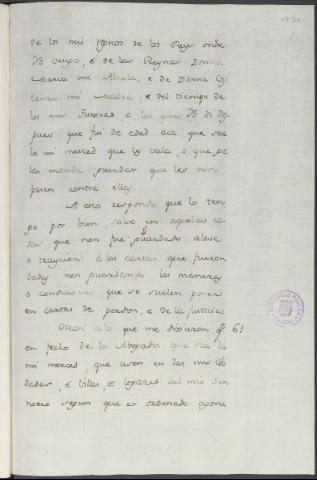 de los mis Thonos de los Reys onde
Yo vengo, e de las Reynas Donna
Maria mi Abuela, e de Donna Cos
tanza mi Madre, e del tiempo de
los mis Tutores, e las que Yo di des
pues que fui de edad aca que sea
la mi merced que les vala, o que se
las mande guardar que les non
pasen contra ellas.
A esto respondo que lo ten
go por bien, salvo en aquellas co
sas que non fue guardado aleve
o traycion: é las cartas que fueron
dadas non guardando las maneras
o condiciones que se suelen poner
en cartas de perdon, e de la Justicia
Otrosi a lo que me dixieron q.e 65
en fecho de los Abogados que sea la
mi merced, que usen en las mis Cib
dades, é Villas, é logares del mio Sen
norio segun que es ordenado agora